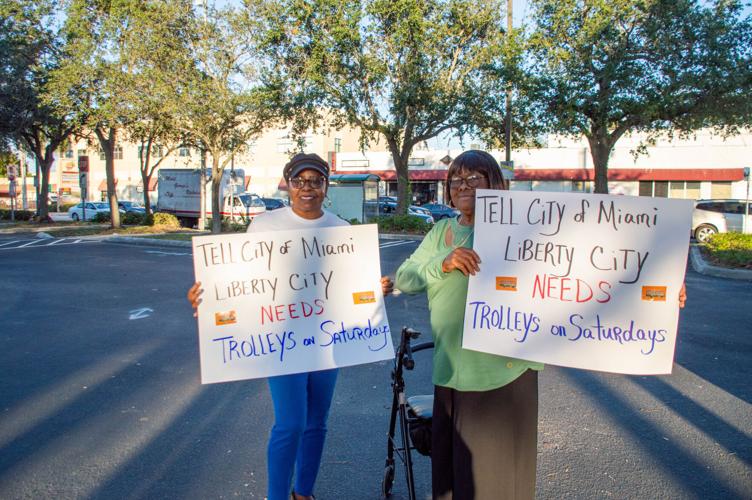 TELL CITY of MIAMI
LIBERTY CITY
NEEDS
TROLLEYS on SATURDAYS
TELL CITY of MIAMI
LIBERTY CITY
NEEDS
TROLLEYS on SATURDAYS